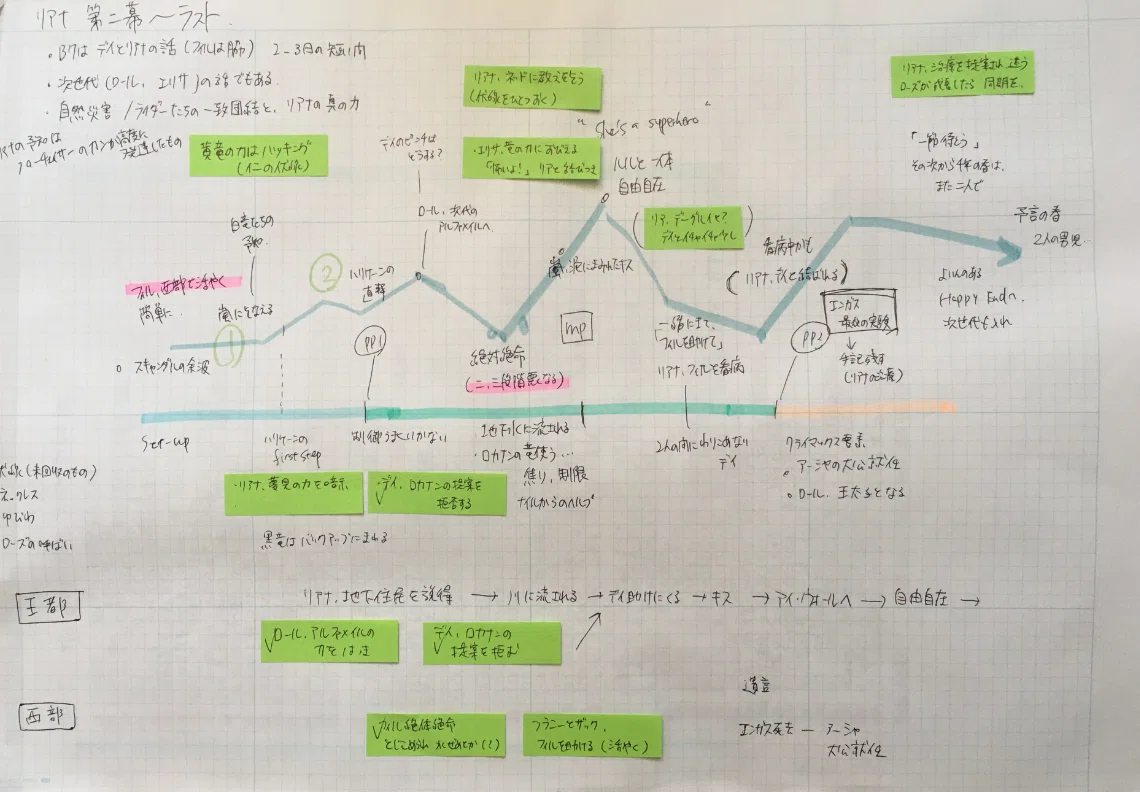 リアナ 第二幕〜ラスト
・B7は デイとリアナの話(フィルは脇) 2-3日の短い間
・次世代(ロール、エリサ)の話でもある
・自然災害 / ライダーたちの一致団結と、リアナの真の力
黄竜の力はハッキング
白竜たちの
予知
フィル、西部で活やく
簡単に
嵐にそなえる
①
②
○ スキャンダルの余波
ハリケーンの
直撃
PP1
デイのピンチは
どうする?
ロール、次代の
アルファメイルへ
リアナ、ネドに教えをこう
(伏線をひとつおく)
・エリサ、竜の力におびえる
「怖いよ!」リアと結びつき
"She's a superhero"
ルルと一体
自由自在
嵐、泥にまみれたキス
絶対絶命
(二、三段階悪くなる)
mp
デイとイチャイチャ
「一緒に立て、
フィルを助けて」
リアナ、フィルを看病
看病中かも
(リアナ、デイと結ばれる)
PP2
エンガス
最後の実験
手記を残す
(リアナの治療)
リアナ、治療を提案され迷う
ローズが成長したら 同期を。
その次から4年の春は、
また二人で
予言の春
2人の男児…
よいんのある
Happy Endへ
次世代もふれ
Set-up
ハリケーンの
first step
制御うまくいかない
地下水に流される
・ロカナンの竜使う…
焦り、制限
ナイルからのヘルプ
2人の間にわりこめない
デイ
クライマックス要素
○ アーシャの大公就任
○ ロール、王太子となる
伏線(未回収のもの)
ネックレス
ゆびわ
ローズの呼ばい
・リアナ、黄竜の力を暗示
・デイ、ロカナンの提案を
拒否する
黒竜はバックアップにまわる
王都
リアナ、地下住民を説得 → 川に流される → デイ助けにくる → キス → アイ・ウォールへ → 自由自在 →
ロール、アルファメイルの
デイ、ロカナンの
提案を拒む
西部
フィル絶体絶命
フラニーとザック、
フィルを助ける(活やく)
遺言
エンガス死去 — アーシャ
大公就任